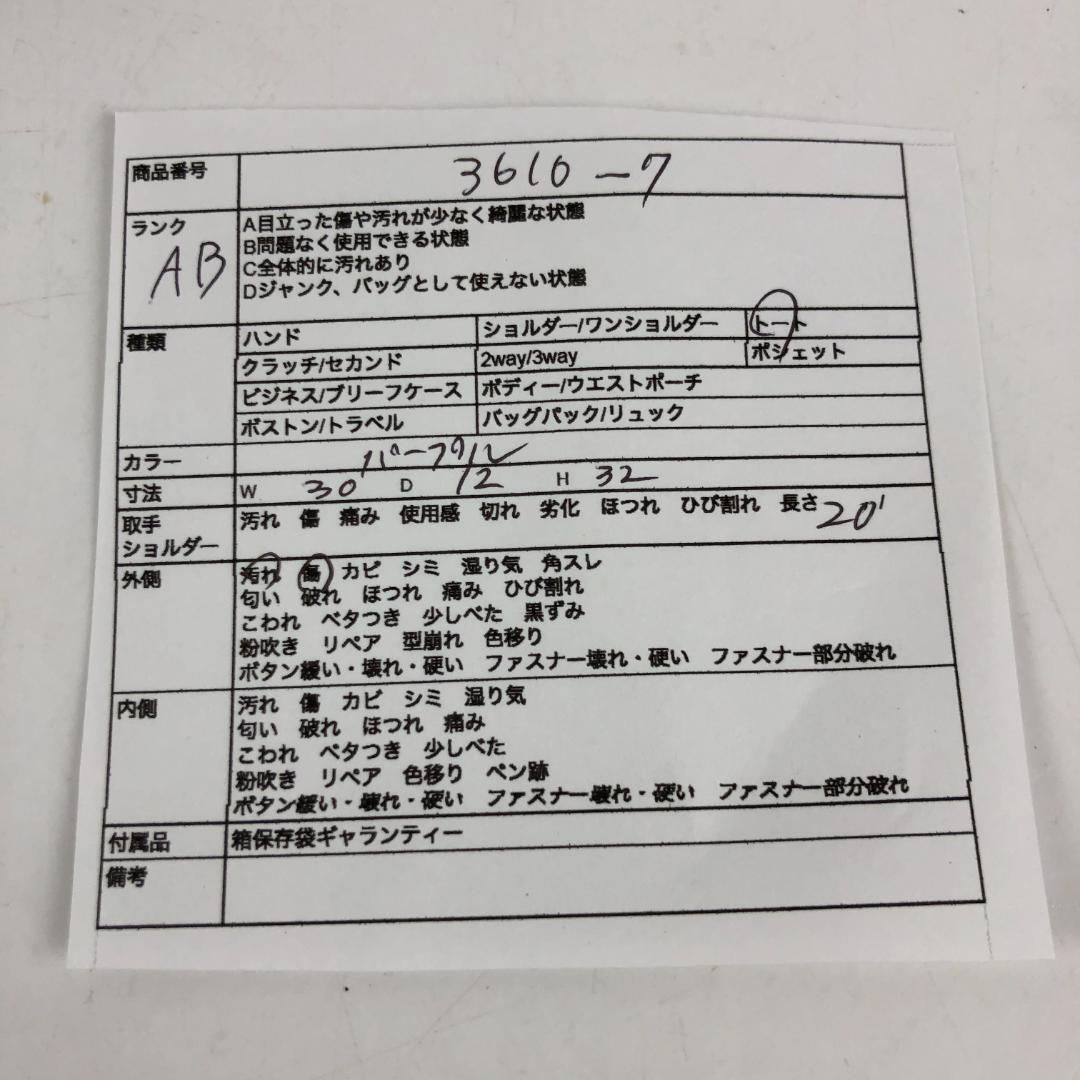 商品番号 3610-7
ランク A目立った傷や汚れが少なく綺麗な状態
AB B問題なく使用できる状態
C全体的に汚れあり
Dジャンク、バッグとして使えない状態
種類 ハンド ショルダー/ワンショルダー トート
クラッチ/セカンド 2way/3way ポシェット
ビジネス/ブリーフケース ボディー/ウエストポーチ
ボストン/トラベル バッグパック/リュック
カラー パープル
寸法 W 30 D 12 H 32
取手 汚れ 傷 痛み 使用感 切れ 劣化 ほつれ ひび割れ 長さ 20
ショルダー
外側 汚れ 傷 カビ シミ 湿り気 角スレ
匂い 破れ ほつれ 痛み ひび割れ
こわれ ベタつき 少しべた 黒ずみ
粉吹き リペア 型崩れ 色移り
ボタン緩い・壊れ・硬い ファスナー壊れ・硬い ファスナー部分破れ
内側 汚れ 傷 カビ シミ 湿り気
匂い 破れ ほつれ 痛み
こわれ ベタつき 少しべた
粉吹き リペア 色移り ペン跡
ボタン緩い・壊れ・硬い ファスナー壊れ・硬い ファスナー部分破れ
付属品 箱保存袋ギャランティー
備考